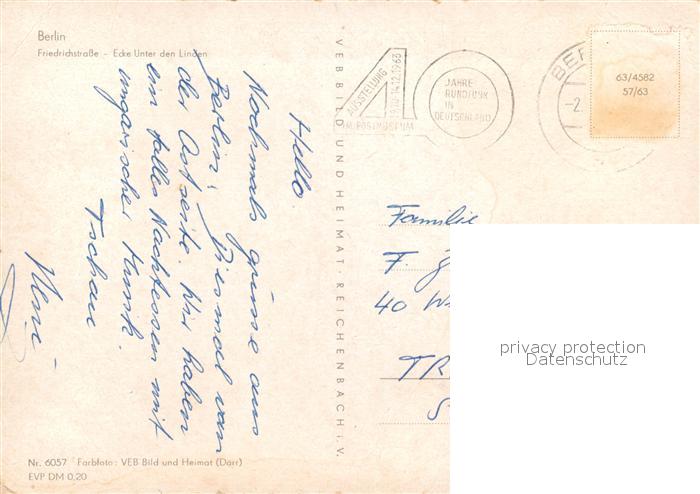 Berlin
Friedrichstraße – Ecke Unter den Linden
Hello.
Nochmals grüsse aus
Berlin! Diesmal von
der Ostseite. Wir haben
ein tolles Nachtessen mit
ungarischer Musik.
Tschau
VEB BILD UND HEIMAT · REICHENBACH i. V.
AUSSTELLUNG
14.12.1963
IM POSTMUSEUM
40
JAHRE
RUNDFUNK
IN
DEUTSCHLAND
BER
-2.
63/4582
57/63
Familie
F.
40 W
TR
S
privacy protection
Datenschutz
Nr. 6057 Farbfoto: VEB Bild und Heimat (Darr)
EVP DM 0,20